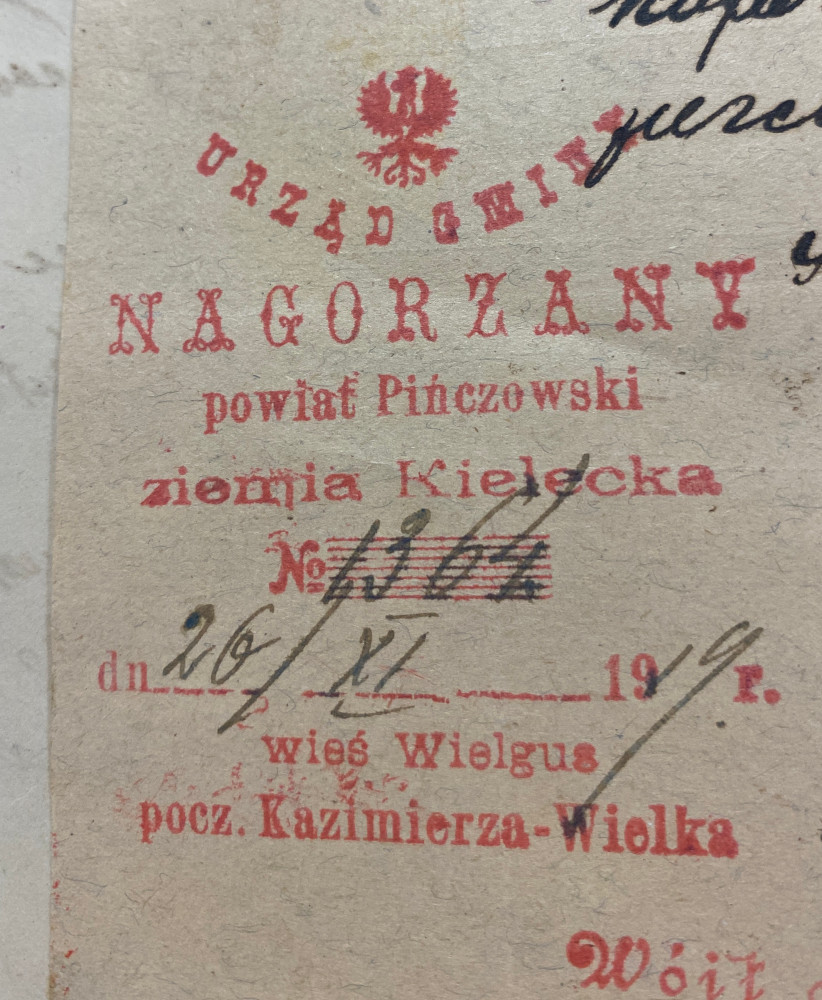 URZĄD GMINY
NAGORZANY
powiat Pińczowski
ziemia Kielecka
№ 1364
dn 26/XI 1919 r.
wieś Wielgus
pocz. Kazimierza-Wielka
Wójt